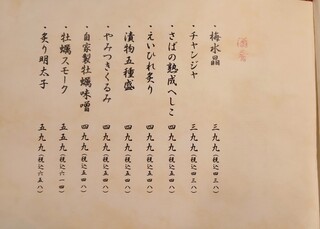 酒肴
・梅水晶 三九九(税込四三八)
・チャンジャ 三九九(税込四三八)
・さばの熟成へしこ 四九九(税込五四八)
・えいひれ炙り 四九九(税込五四八)
・漬物五種盛 四九九(税込五四八)
・やみつきくるみ 四九九(税込五四八)
・自家製牡蠣味噌 四九九(税込五四八)
・牡蠣スモーク 五五九(税込六一四)
・炙り明太子 五九九(税込六五八)